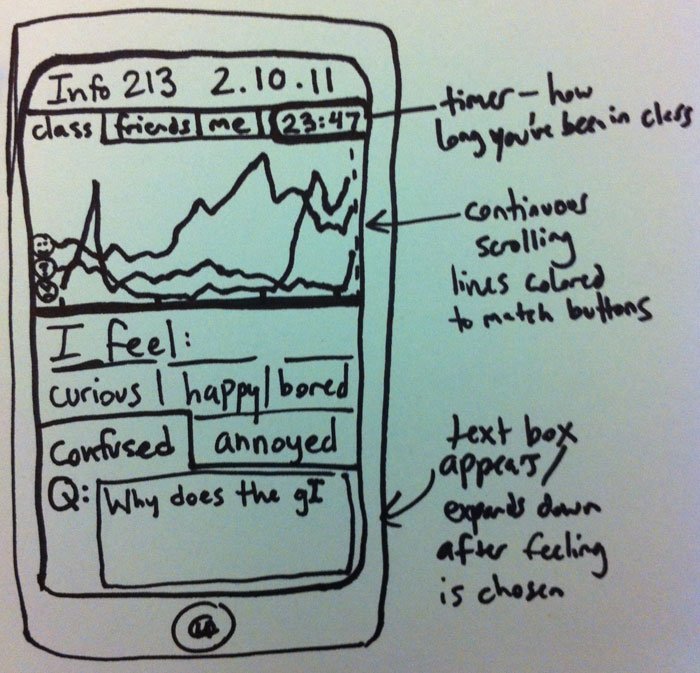 Info 213 2.10.11
class friends me 23:47
I feel:
curious happy bored
confused annoyed
Q: Why does the gI
timer – how
long you've been in class
continuous
scrolling
lines colored
to match buttons
text box
appears/
expands down
after feeling
is chosen